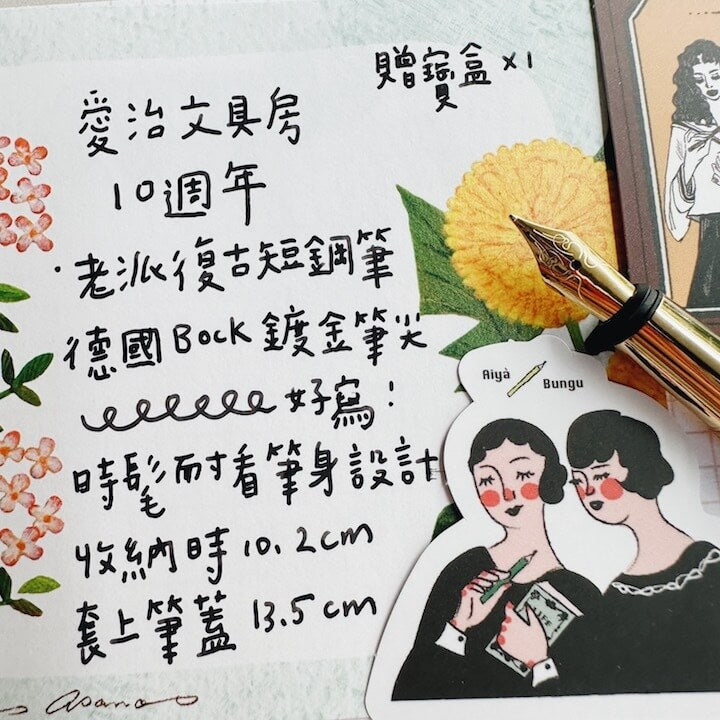 贈寶盒x1
愛治文具房
10週年
·老派復古短鋼筆
德國Bock鍍金筆尖
好寫!
時髦耐看筆身設計
收納時10.2cm
套上筆蓋13.5cm
Aiyà Bungu
LIFE
asana